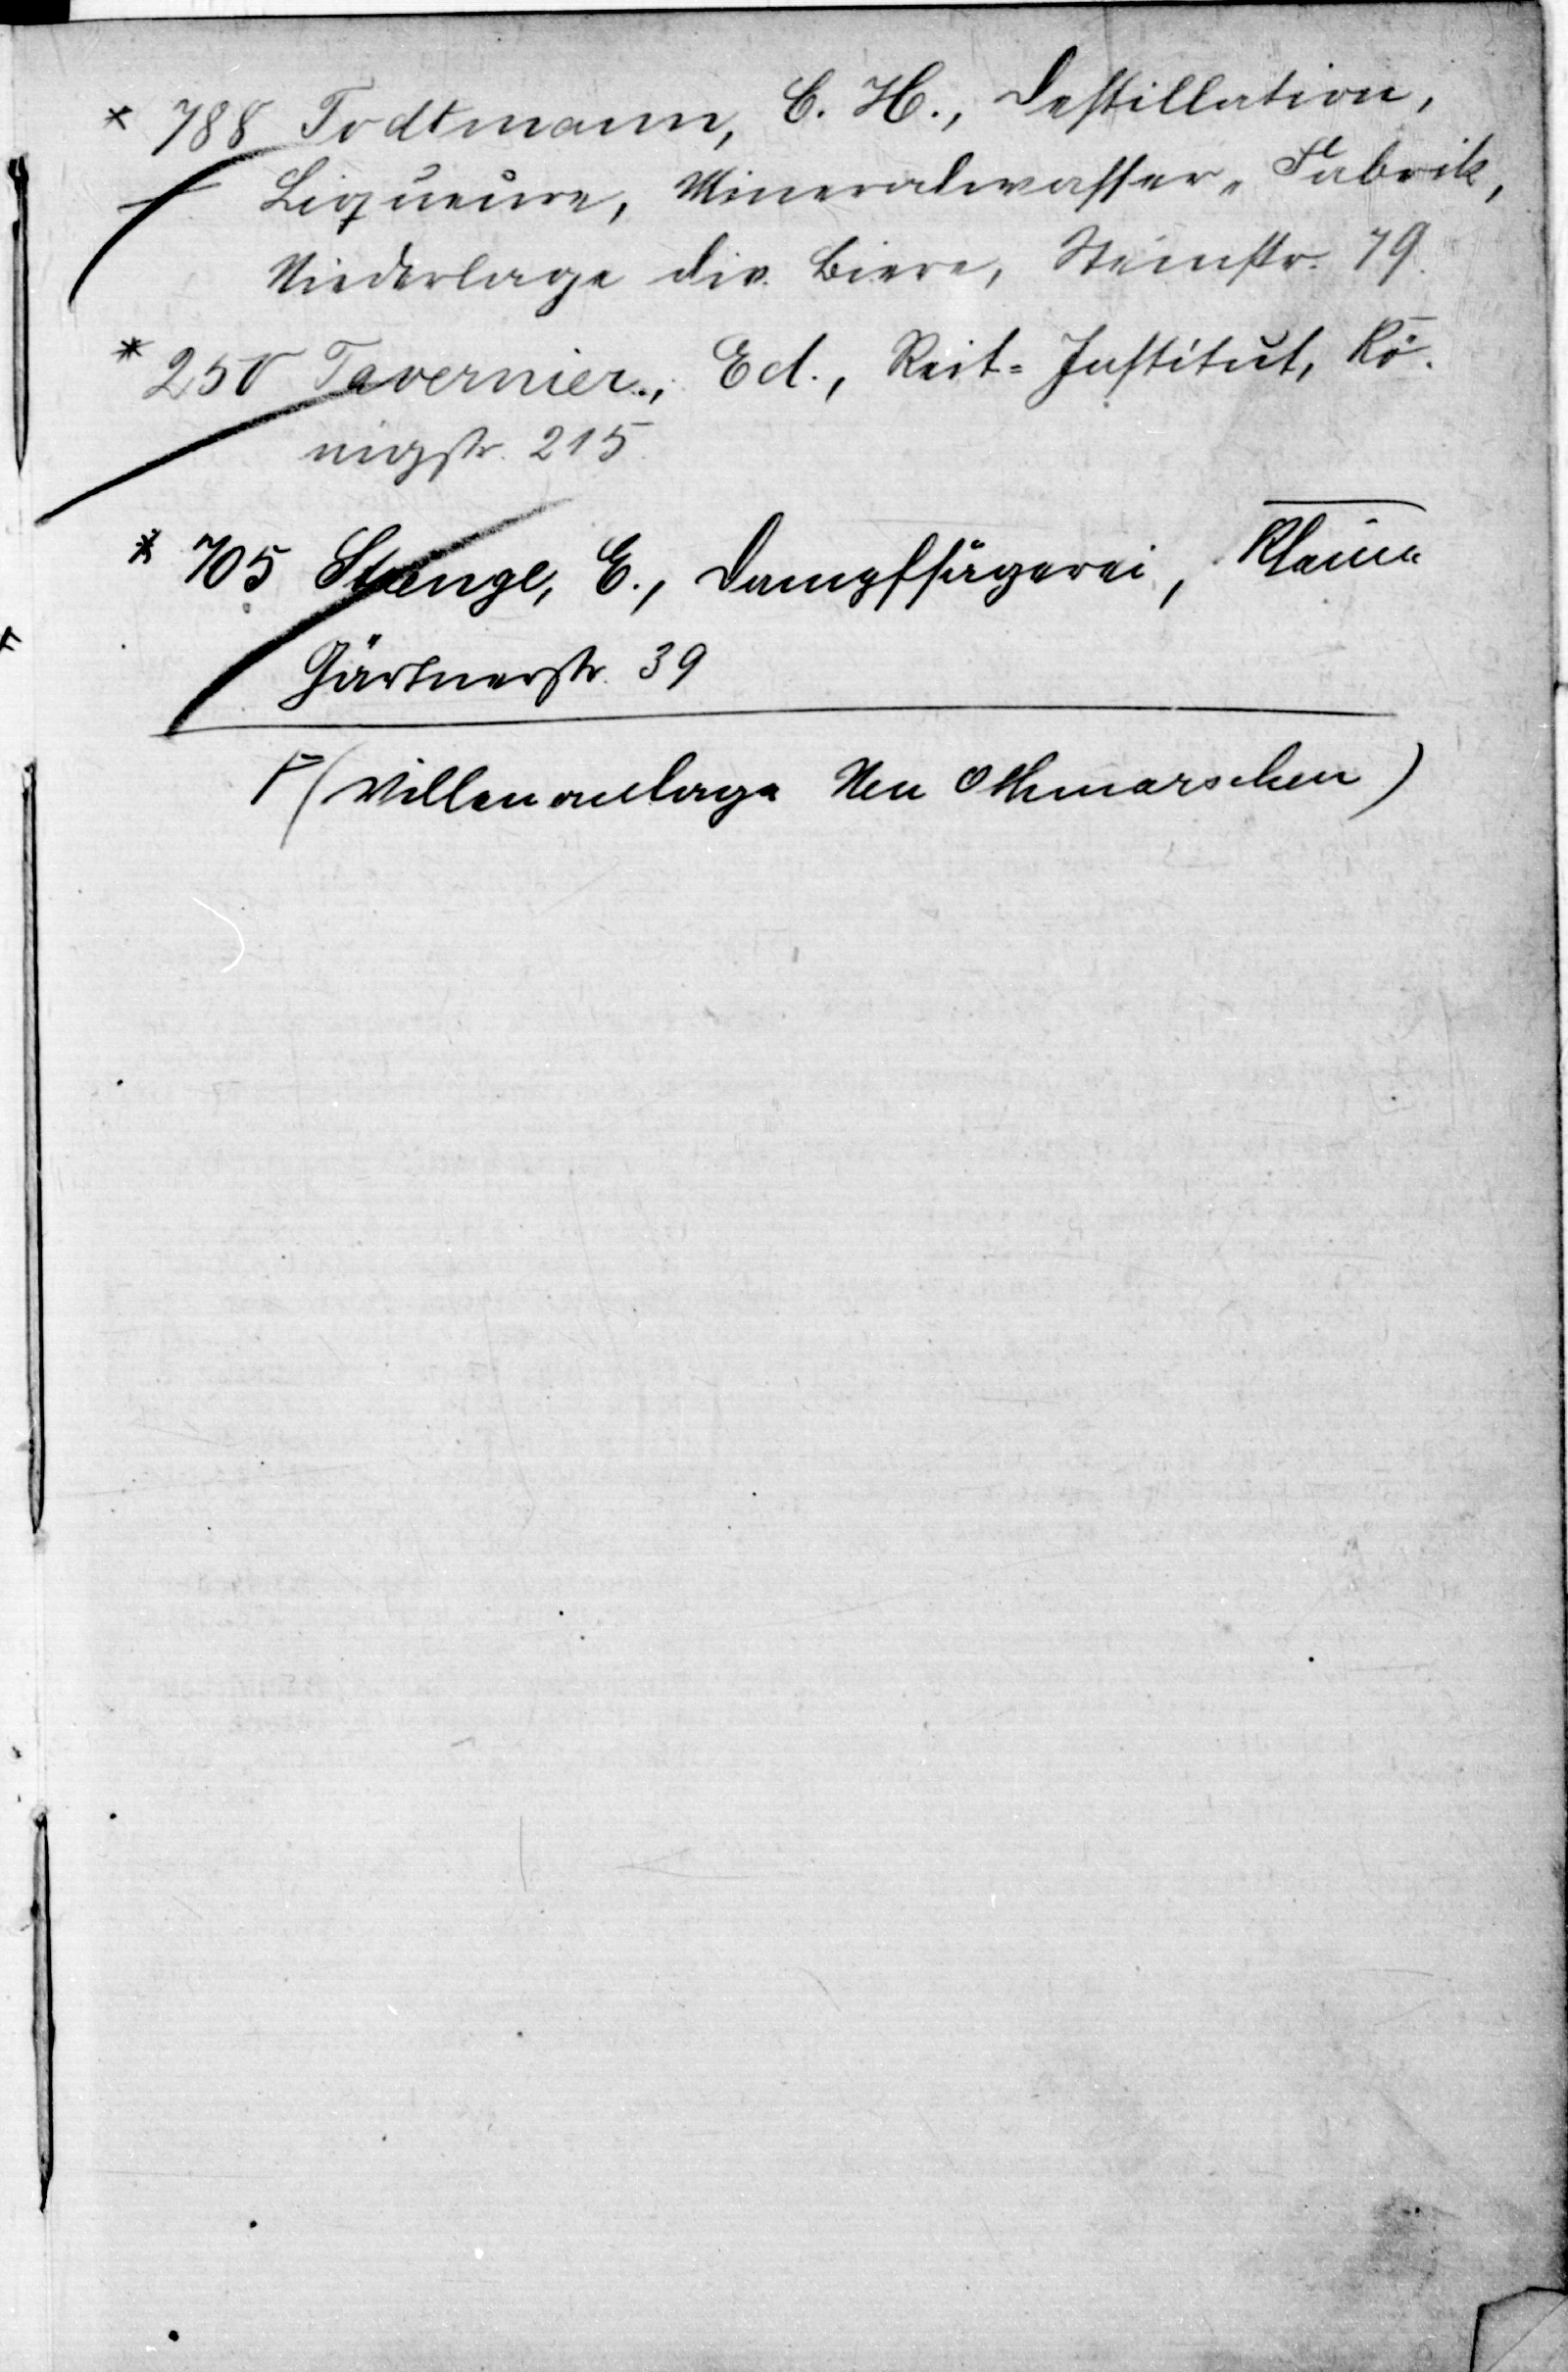 * 788 Todtmann, C. H., Destillation,
Liqueure, Mineralwasser-Fabrik,
Niederlage div. Biere, Steinstr. 79.
* 250 Tavernier., Ed., Reit=Institut, Kö-
nigstr. 215.
* 705 Stange, E., Dampfsägerei, Kleine
Gärtnerstr. 39
(Villenanlage Neu Othmarschen)